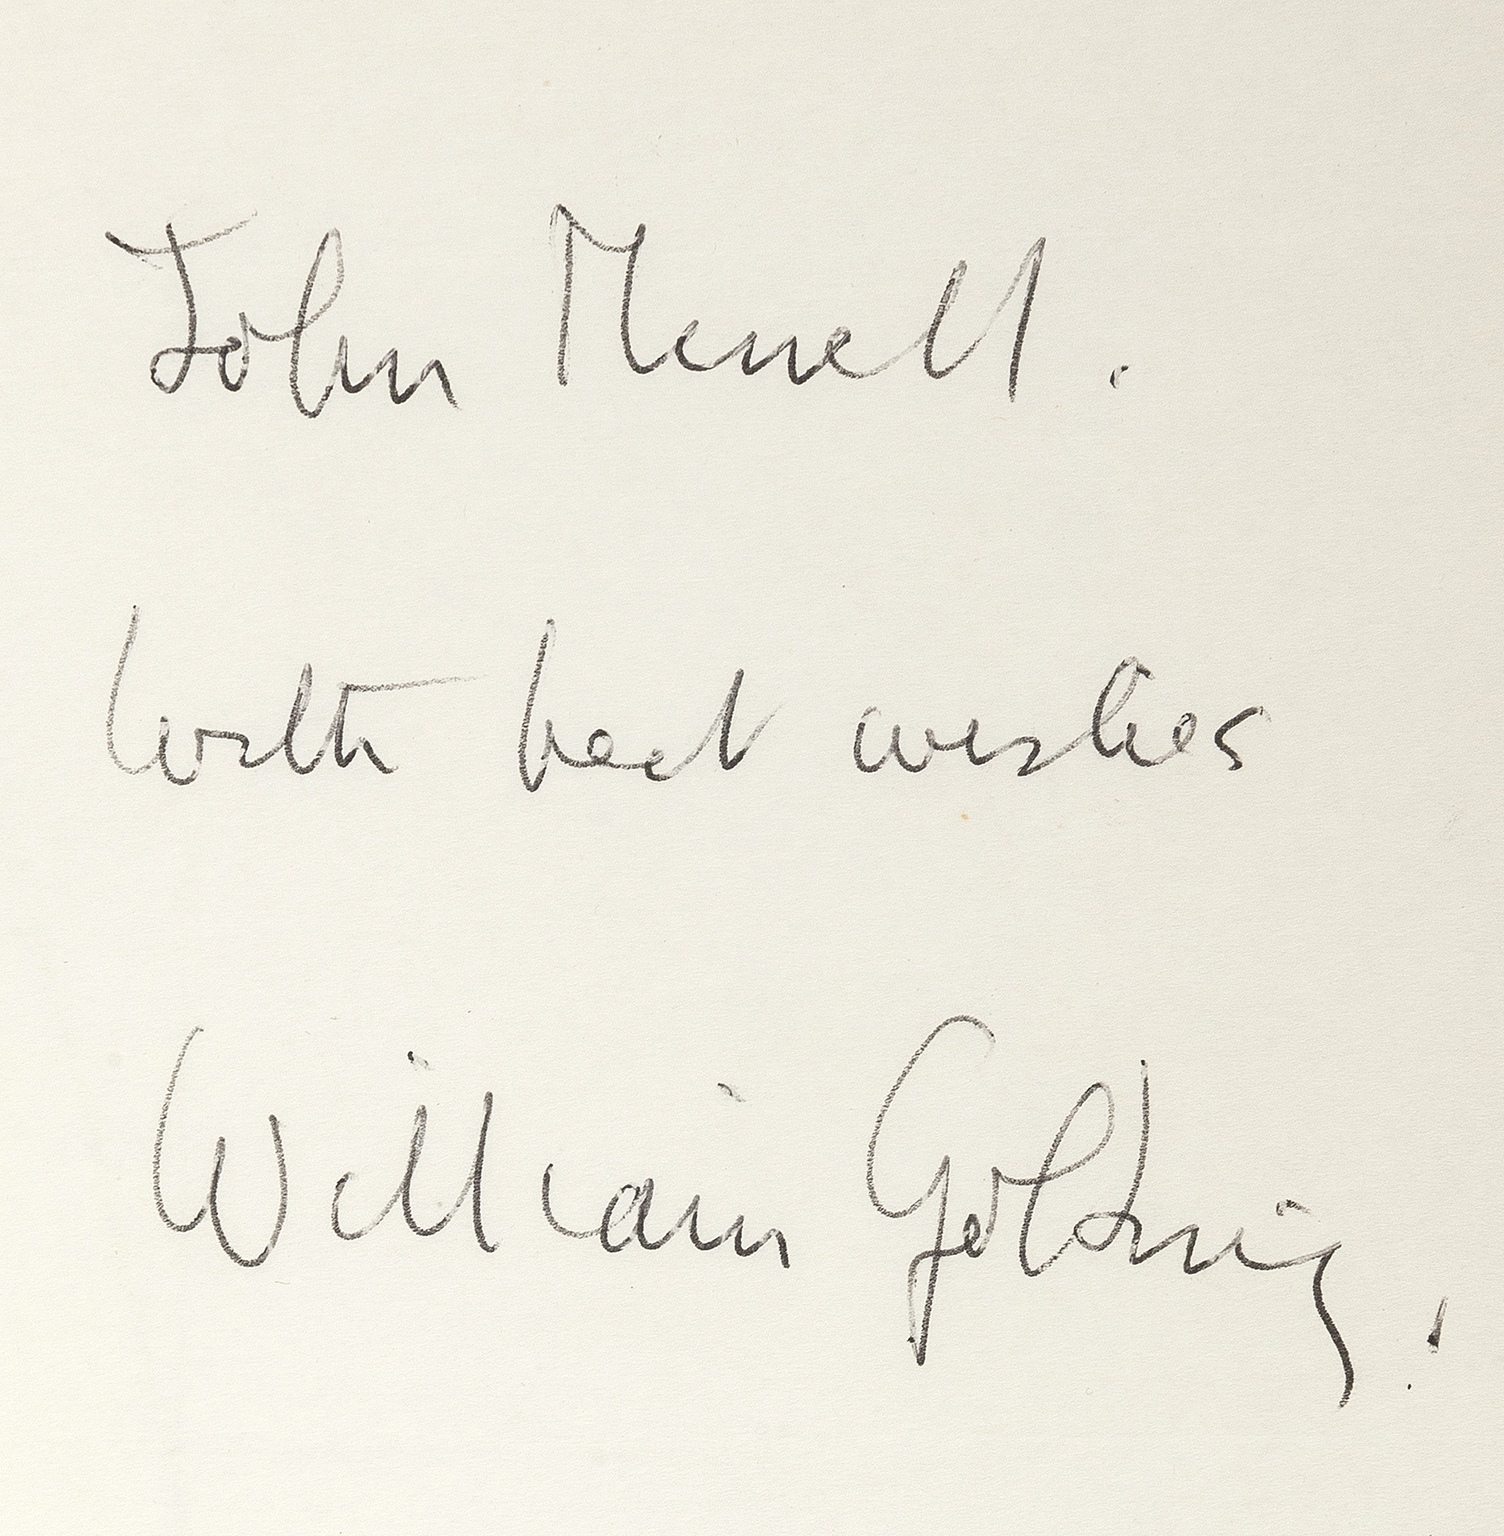 John Menell.
With best wishes
William Golding.